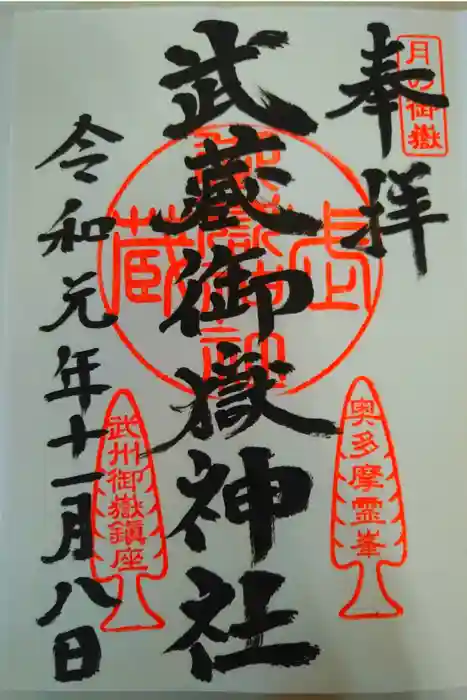 月の御嶽
奉拝
武蔵御嶽神社
奥多摩霊峯
武州御嶽鎮座
令和元年十一月八日